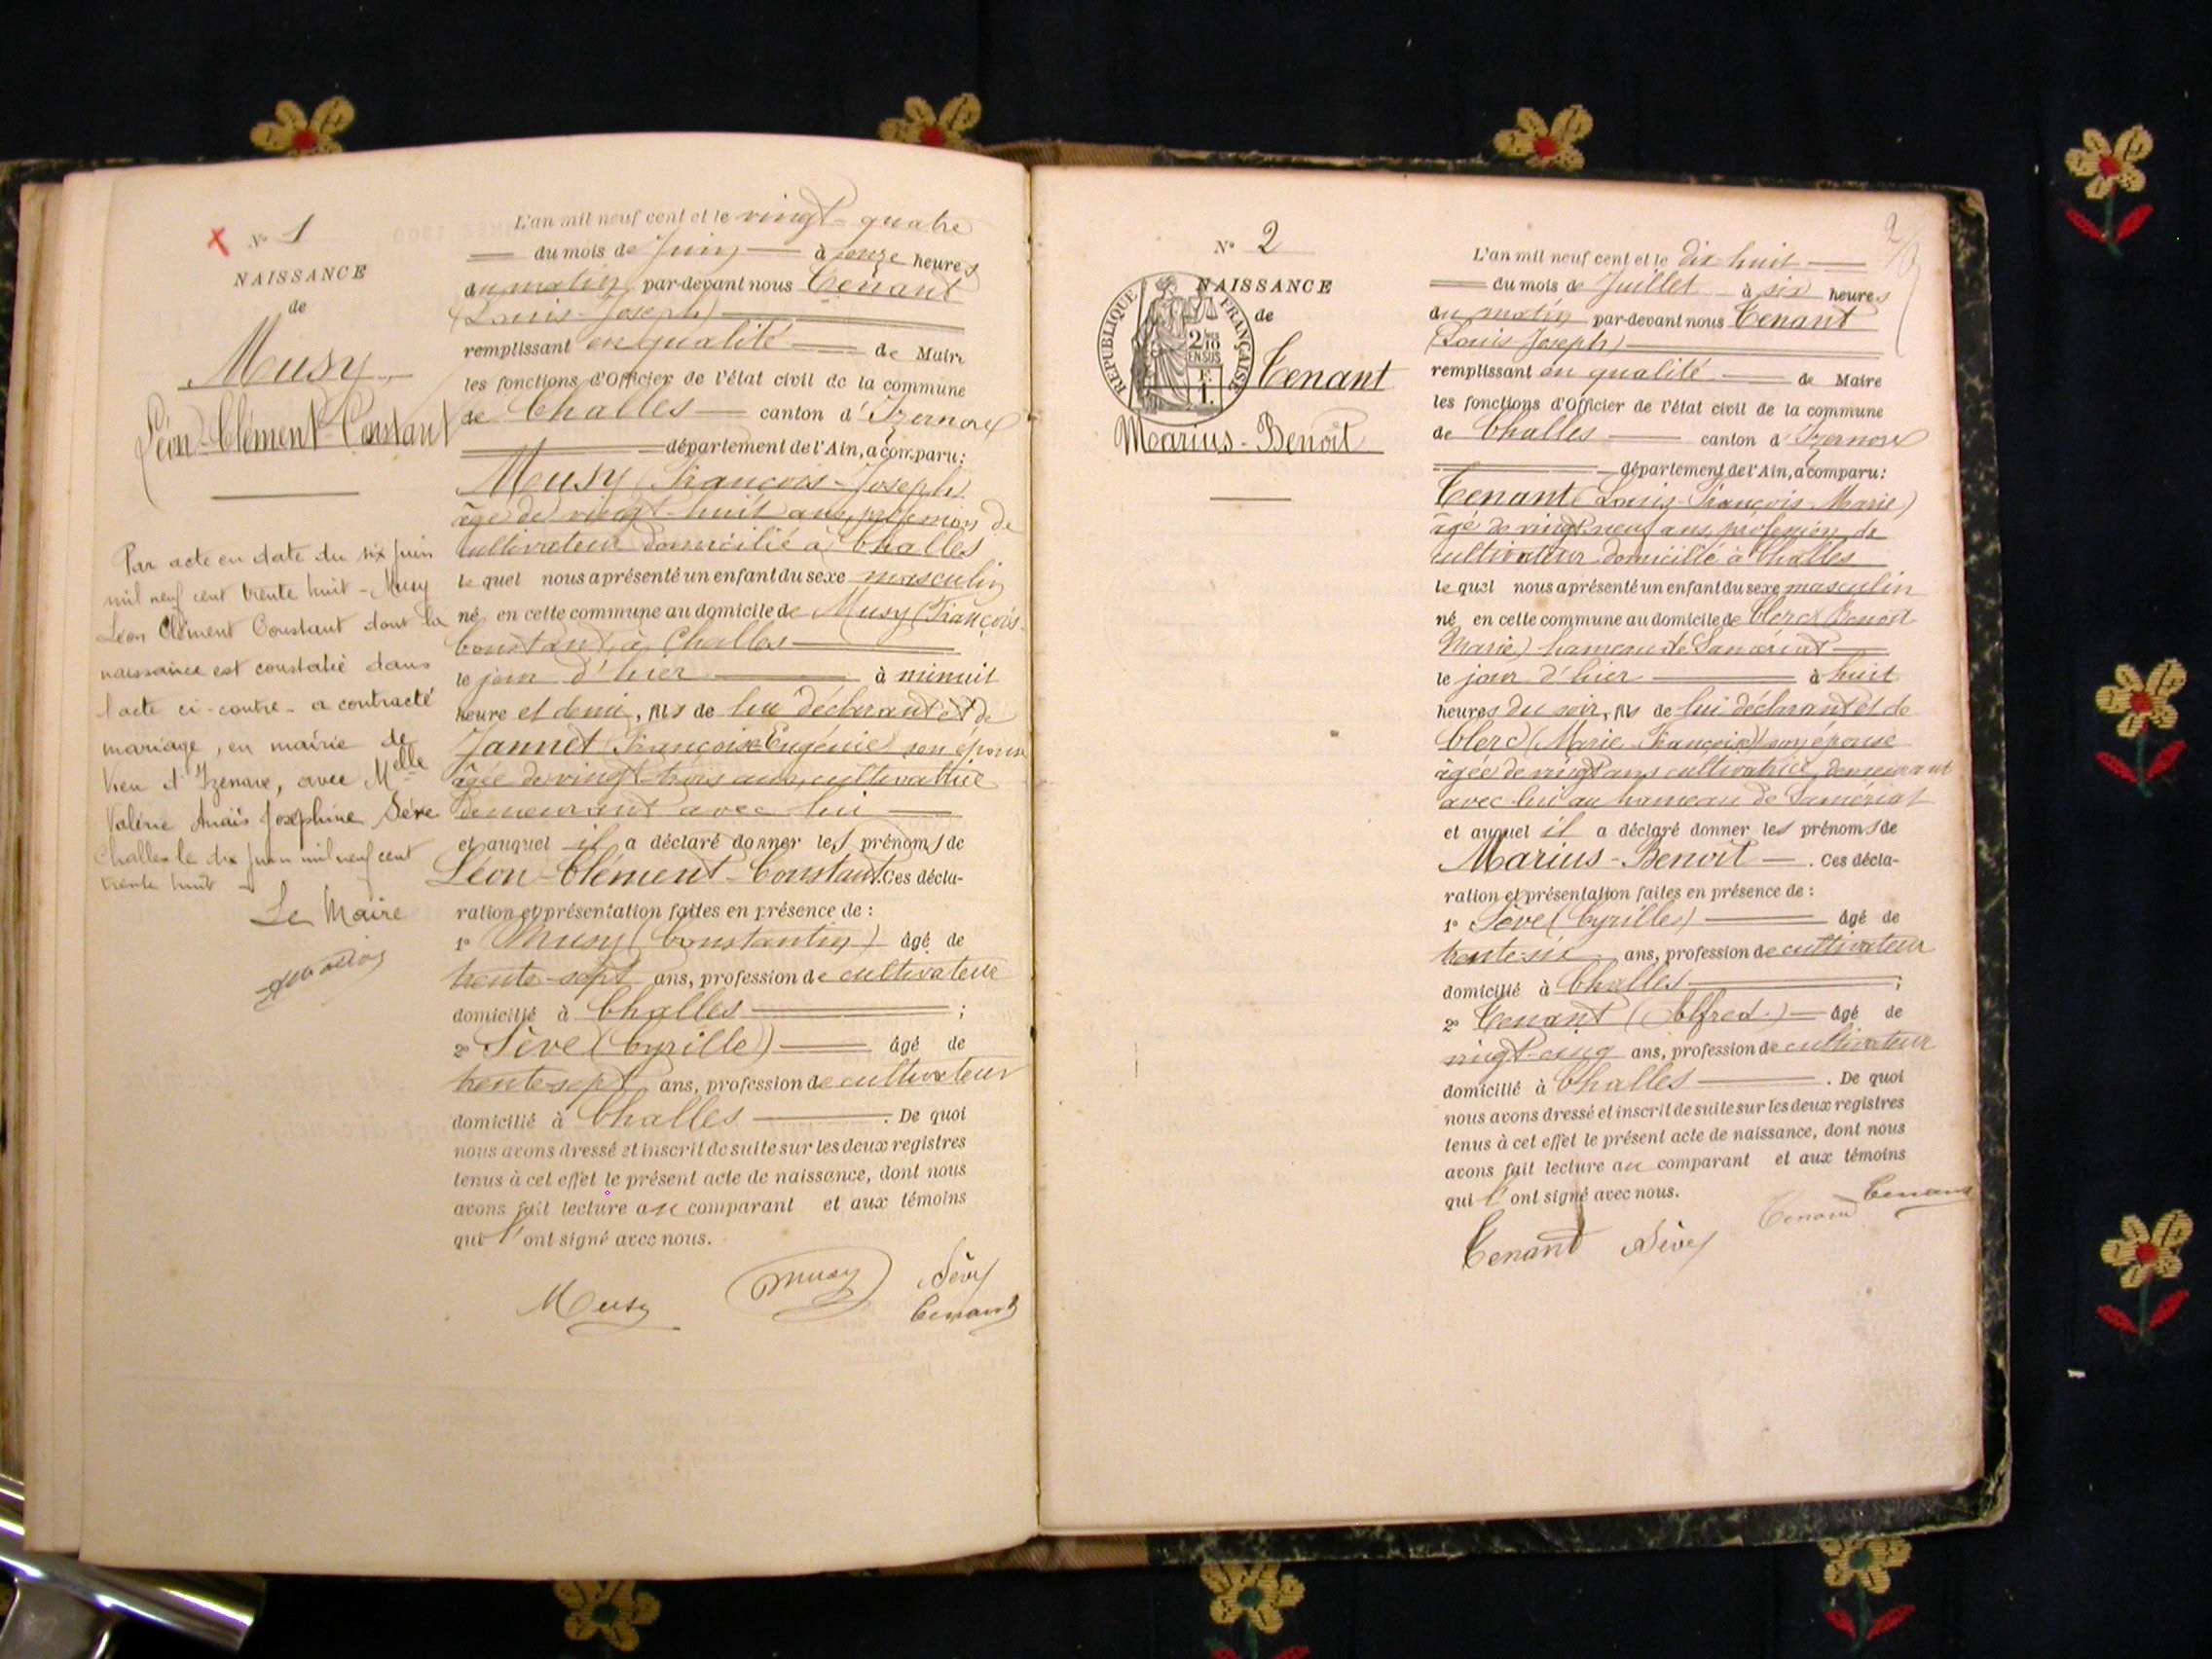 N° 1
NAISSANCE
de
Musy
Léon-Clément-Constant
Par acte en date du six juin
mil neuf cent trente huit - Musy
Léon Clément Constant dont la
naissance est constatée dans
l'acte ci-contre - a contracté
mariage, en mairie de
Vieu d'Izenave, avec Melle
Valérie Anaïs Joséphine Sève
Challes le dix juin mil neuf cent
trente huit
Le Maire
L'an mil neuf cent et le vingt-quatre
du mois de Juin à onze heures
du matin par-devant nous Tenant
(Louis-Joseph)
remplissant en qualité de Maire
les fonctions d'Officier de l'état civil de la commune
de Challes canton d'Izernore
département de l'Ain, a comparu:
Musy (François-Joseph)
âgé de vingt-huit ans, profession de
cultivateur domicilié à Challes
le quel nous a présenté un enfant du sexe masculin
né en cette commune au domicile de Musy (François-
Constant) à Challes
le jour d'hier à minuit
heure et demi, fils de lui déclarant et de
Jannet (Françoise Eugénie) son épouse
âgée de vingt-trois ans, cultivatrice
demeurant avec lui
et auquel il a déclaré donner les prénoms de
Léon-Clément-Constant. Ces décla-
ration et présentation faites en présence de :
1° Musy (Constantin) âgé de
trente-sept ans, profession de cultivateur
domicilié à Challes ;
2° Sève (Cyrille) âgé de
trente-sept ans, profession de cultivateur
domicilié à Challes . De quoi
nous avons dressé et inscrit de suite sur les deux registres
tenus à cet effet le présent acte de naissance, dont nous
avons fait lecture au comparant et aux témoins
qui l'ont signé avec nous.
Musy musy Sève
Tenant
2
N° 2
NAISSANCE
de
RÉPUBLIQUE FRANÇAISE
2/10
EN SUS
Tenant
Marius-Benoit
L'an mil neuf cent et le dix-huit
du mois de Juillet à six heures
du matin par-devant nous Tenant
(Louis-Joseph)
remplissant en qualité de Maire
les fonctions d'Officier de l'état civil de la commune
de Challes canton d'Izernore
département de l'Ain, a comparu:
Tenant (Louis-François-Marie)
âgé de vingt-neuf ans, profession de
cultivateur domicilié à Challes
le quel nous a présenté un enfant du sexe masculin
né en cette commune au domicile de Clerc (Benoit
Marie) hameau de Samériat
le jour d'hier à huit
heures du soir, fils de lui déclarant et de
Clerc (Marie-Françoise) son épouse
âgée de vingt ans cultivatrice, demeurant
avec lui au hameau de Samériat
et auquel il a déclaré donner les prénoms de
Marius-Benoit . Ces décla-
ration et présentation faites en présence de :
1° Sève (Cyrilles) âgé de
trente-six ans, profession de cultivateur
domicilié à Challes ;
2° Tenant (Alfred) âgé de
vingt-cinq ans, profession de cultivateur
domicilié à Challes . De quoi
nous avons dressé et inscrit de suite sur les deux registres
tenus à cet effet le présent acte de naissance, dont nous
avons fait lecture au comparant et aux témoins
qui l'ont signé avec nous.
Tenant Sève Tenant Tenant